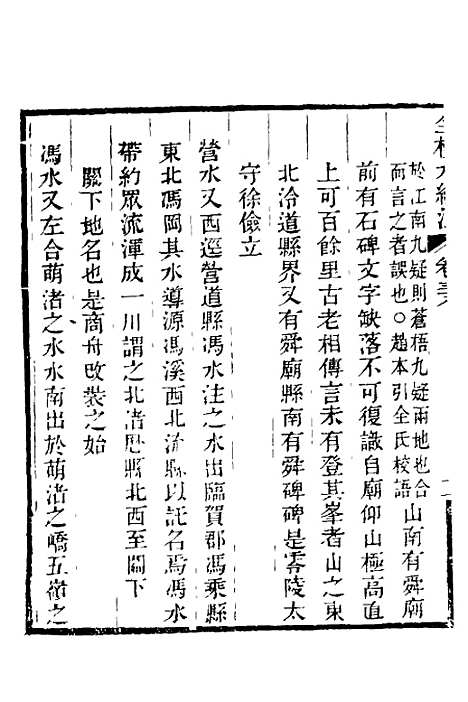 全校水經注 卷三
於江南九疑則蒼梧九疑兩地也合
而言之者誤也○趙本引全氏校語
山南有舜廟
前有石碑文字缺落不可復識自廟仰山極高直
上可百餘里古老相傳言未有登其峯者山之東
北泠道縣界又有舜廟縣南有舜碑碑是零陵太
守徐儉立
營水又西逕營道縣馮水注之水出臨賀郡馮乘縣
東北馮岡其水導源馮溪西北流縣以託名焉馮水
帶約眾流渾成一川謂之北渚歷縣北西至關下
關下地名也是商舟改裝之始
馮水又左合萌渚之水水南出於萌渚之嶠五嶺之